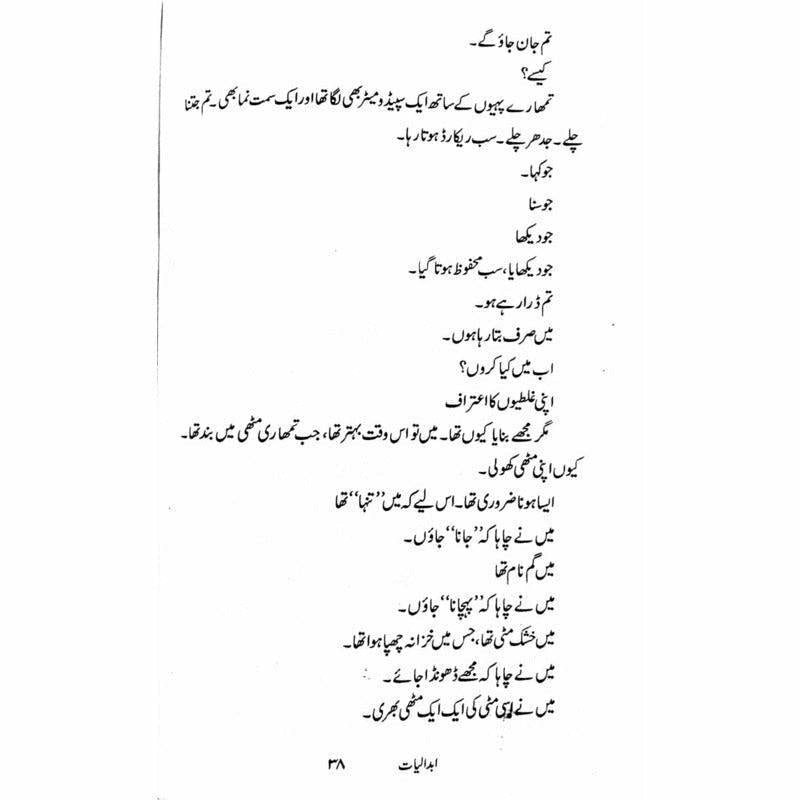 تم جان جاؤ گے۔
کیسے؟
تمھارے پہیوں کے ساتھ ایک سپیڈومیٹر بھی لگا تھا اور ایک سمت نما بھی۔ تم جتنا
چلے۔ جدھر چلے۔ سب ریکارڈ ہوتا رہا۔
جو کہا۔
جو سنا
جو دیکھا
جو دیکھایا، سب محفوظ ہوتا گیا۔
تم ڈرا رہے ہو۔
میں صرف بتا رہا ہوں۔
اب میں کیا کروں؟
اپنی غلطیوں کا اعتراف
مگر مجھے بنایا کیوں تھا۔ میں تو اس وقت بہتر تھا، جب تمھاری مٹھی میں بند تھا۔
کیوں اپنی مٹھی کھولی۔
ایسا ہونا ضروری تھا۔ اس لیے کہ میں ’’تنہا‘‘ تھا
میں نے چاہا کہ ’’جانا‘‘ جاؤں۔
میں گم نام تھا
میں نے چاہا کہ ’’پہچانا‘‘ جاؤں۔
میں خشک مٹی تھا، جس میں خزانہ چھپا ہوا تھا۔
میں نے چاہا کہ مجھے ڈھونڈا جائے۔
میں نے اسی مٹی کی ایک ایک مٹھی بھری۔
ابدالیات ۳۸